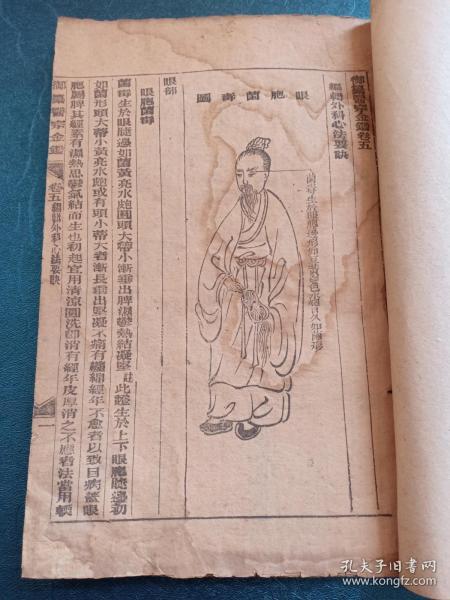 御纂醫宗金鑑卷五
編輯外科心法要訣
眼胞菌毒圖
菌毒生於眼胞
眼部
眼胞菌毒
菌毒生於眼睫邊如菌黃亮水皰頭大蒂小漸垂出脾濕鬱熱結凝堅
註此證生於上下眼胞睫邊初
如菌形頭大蒂小黃亮水皰或有頭小蒂大者漸長垂出堅凝不痛有纏綿經年不愈者以致目病蓋眼
胞屬脾其經素有濕熱思鬱氣結而生也初起宜用清涼圓洗即消有經年皮厚消之不應者法當用軟
御纂醫宗金鑑
卷五編輯外科心法要訣
一
孔夫子旧书网
www.kongfz.com